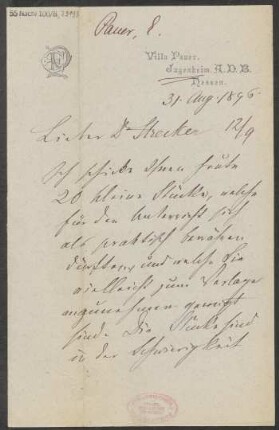 Pauer, E.
Villa Pauer.
Jugenheim A.D.B.
Hessen.
31. Aug. 1896.
Lieber Dr Strecker 12/9
Ich schicke Ihnen heute
20 kleine Stücke, welche
für den Unterricht sich
als praktisch bewähren
dürften, und welche Sie
vielleicht zum Verlage
anzunehmen geneigt
sind. Die Stücke sind
in der Schwierigkeit